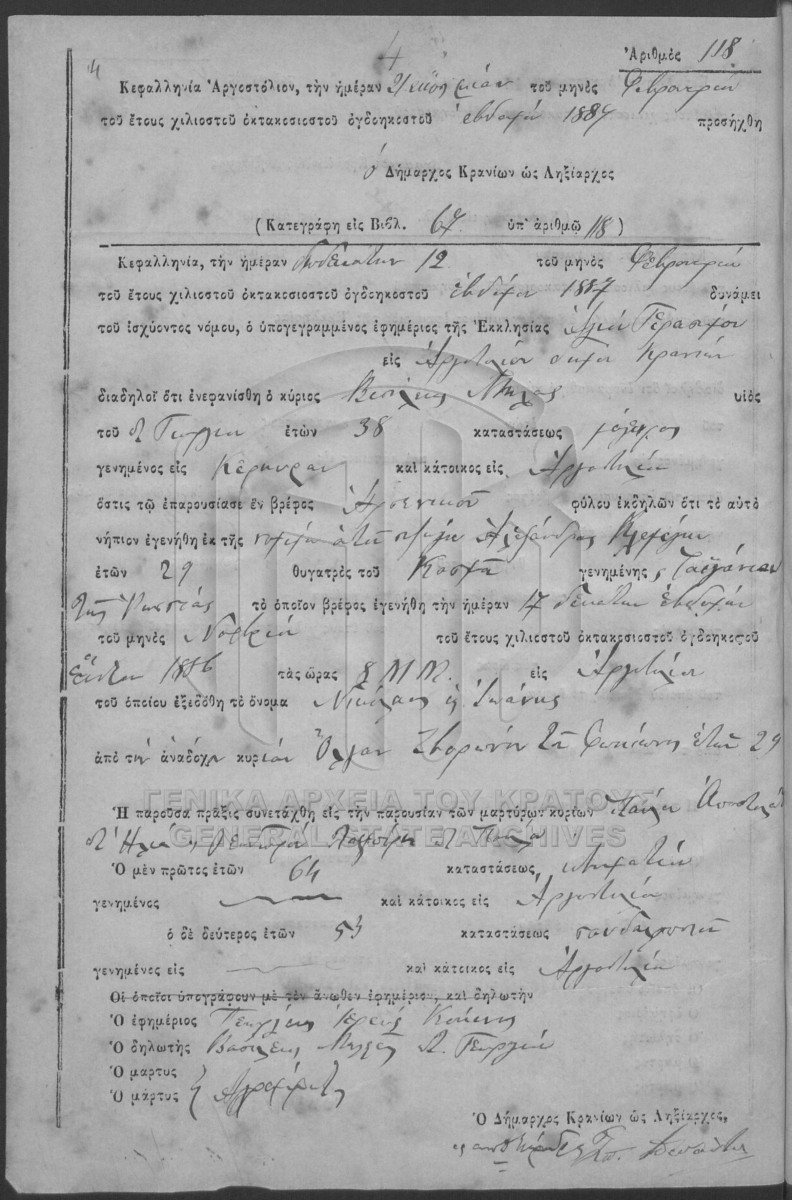 4
4
Ἀριθμὸς 118
Κεφαλληνία Ἀργοστόλιον, τὴν ἡμέραν 21 μίαν τοῦ μηνὸς Φεβρουαρίου
τοῦ ἔτους χιλιοστοῦ ὀκτακοσιοστοῦ ὀγδοηκοστοῦ ἑβδόμου 1887 προσήχθη
ὁ Δήμαρχος Κρανίων ὡς Ληξίαρχος
(Κατεγράφη εἰς Βιβλ. 67 ὑπ' ἀριθμῷ 118)
Κεφαλληνία, τὴν ἡμέραν δωδεκάτην 12 τοῦ μηνὸς Φεβρουαρίου
τοῦ ἔτους χιλιοστοῦ ὀκτακοσιοστοῦ ὀγδοηκοστοῦ ἑβδόμου 1887 δυνάμει
τοῦ ἰσχύοντος νόμου, ὁ ὑπογεγραμμένος ἐφημέριος τῆς Ἐκκλησίας Ἁγίου Γερασίμου
εἰς Ἀργοστόλιον δήμου Κρανίων
διαδηλοῖ ὅτι ἐνεφανίσθη ὁ κύριος Βασίλειος υἱὸς
τοῦ Γεωργίου ἐτῶν 38 καταστάσεως μάγειρος
γενημένος εἰς Κέρκυραν καὶ κάτοικος εἰς Ἀργοστόλιον
ὅστις τῷ ἐπαρουσίασε ἓν βρέφος Ἀρσενικοῦ φύλου ἐκδηλῶν ὅτι τὸ αὐτὸ
νήπιον ἐγενήθη ἐκ τῆς νομίμου αὐτοῦ συζύγου Ἀλεξάνδρας
ἐτῶν 29 θυγατρὸς τοῦ Κοσμᾶ γενημένης
τῆς Ρωσσίας τὸ ὁποῖον βρέφος ἐγενήθη τὴν ἡμέραν 17 δεκάτην ἑβδόμην
τοῦ μηνὸς Νοεμβρίου τοῦ ἔτους χιλιοστοῦ ὀκτακοσιοστοῦ ὀγδοηκοστοῦ
ἕκτου 1886 τὰς ὥρας 8 Μ.Μ. εἰς Ἀργοστόλιον
τοῦ ὁποίου ἐξεδόθη τὸ ὄνομα Νικόλαος ἢ Ἰωάννης
ἀπὸ τὴν ἀνάδοχον κυρίαν Ὄλγαν ἐτῶν 29
ΓΕΝΙΚΑ ΑΡΧΕΙΑ ΤΟΥ ΚΡΑΤΟΥΣ
Ἡ παροῦσα πρᾶξις συνετάχθη εἰς τὴν παρουσίαν τῶν μαρτύρων κυρίων
GENERAL STATE ARCHIVES
Ὁ μὲν πρῶτος ἐτῶν 64 καταστάσεως κτηματίου
γενημένος καὶ κάτοικος εἰς Ἀργοστόλιον
ὁ δὲ δεύτερος ἐτῶν 53 καταστάσεως
γενημένος εἰς καὶ κάτοικος εἰς Ἀργοστόλιον
Οἱ ὁποῖοι ὑπογράφουν μὲ τὸν ἄνωθεν ἐφημέριον, καὶ δηλωτὴν
Ὁ ἐφημέριος Γεώργιος ἱερεὺς
Ὁ δηλωτὴς Βασίλειος Γεωργίου
Ὁ μάρτυς
Ὁ μάρτυς
Ὁ Δήμαρχος Κρανίων ὡς Ληξίαρχος,